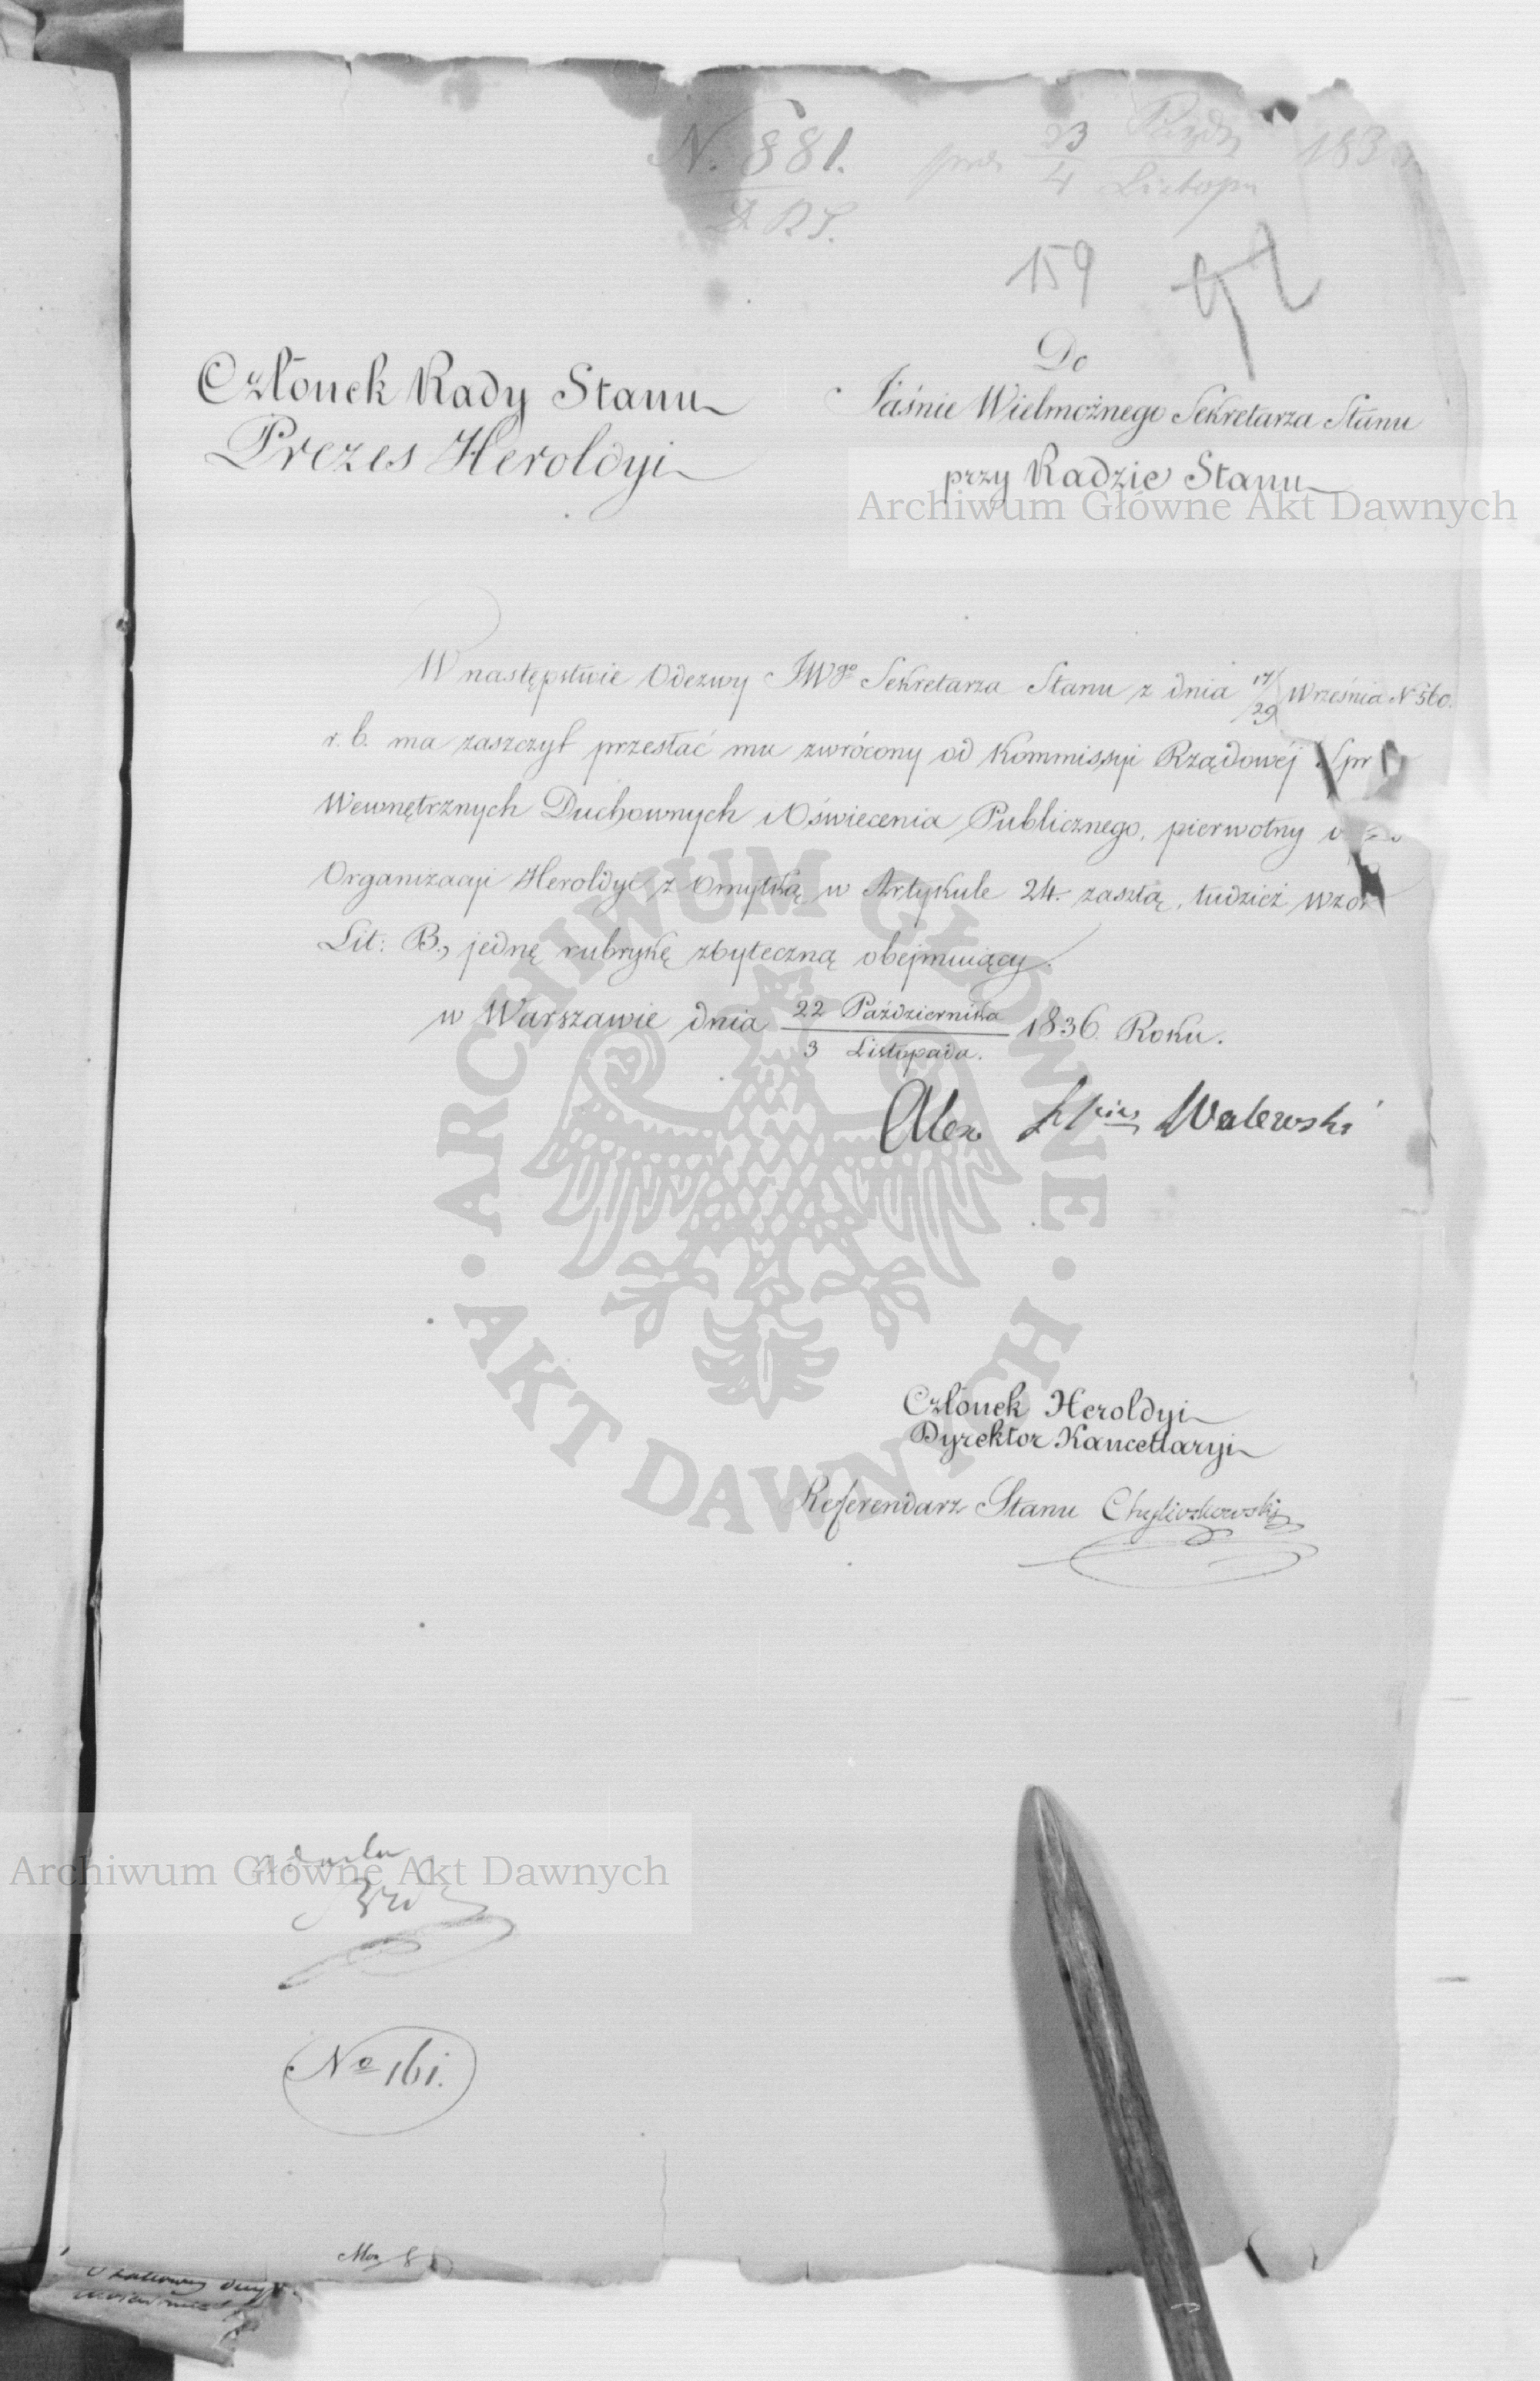 N. 881.
pres 23/4 Paźdz/Listopa 183
159
Członek Rady Stanu
Prezes Heroldyi
Do
Jaśnie Wielmożnego Sekretarza Stanu
przy Radzie Stanu
Archiwum Główne Akt Dawnych
W następstwie Odezwy JWgo Sekretarza Stanu z dnia 17/29 Września N 560.
r. b. ma zaszczyt przesłać mu zwrócony od Kommissyi Rządowéj Spr
Wewnętrznych Duchownych i Oświecenia Publicznego, pierwotny
Organizacyi Heroldyi z omyłką w Artykule 24. zaszłą, tudzież wzor
Lit: B., jednę rubrykę zbyteczną obejmuiący.
w Warszawie dnia 22 Października/3 Listopada. 1836 Roku.
Alex Walewski
ARCHIWUM GŁÓWNE AKT DAWNYCH
Członek Heroldyi
Dyrektor Kancellaryi
Referendarz Stanu Chyliczkowski
Archiwum Główne Akt Dawnych
No 161.